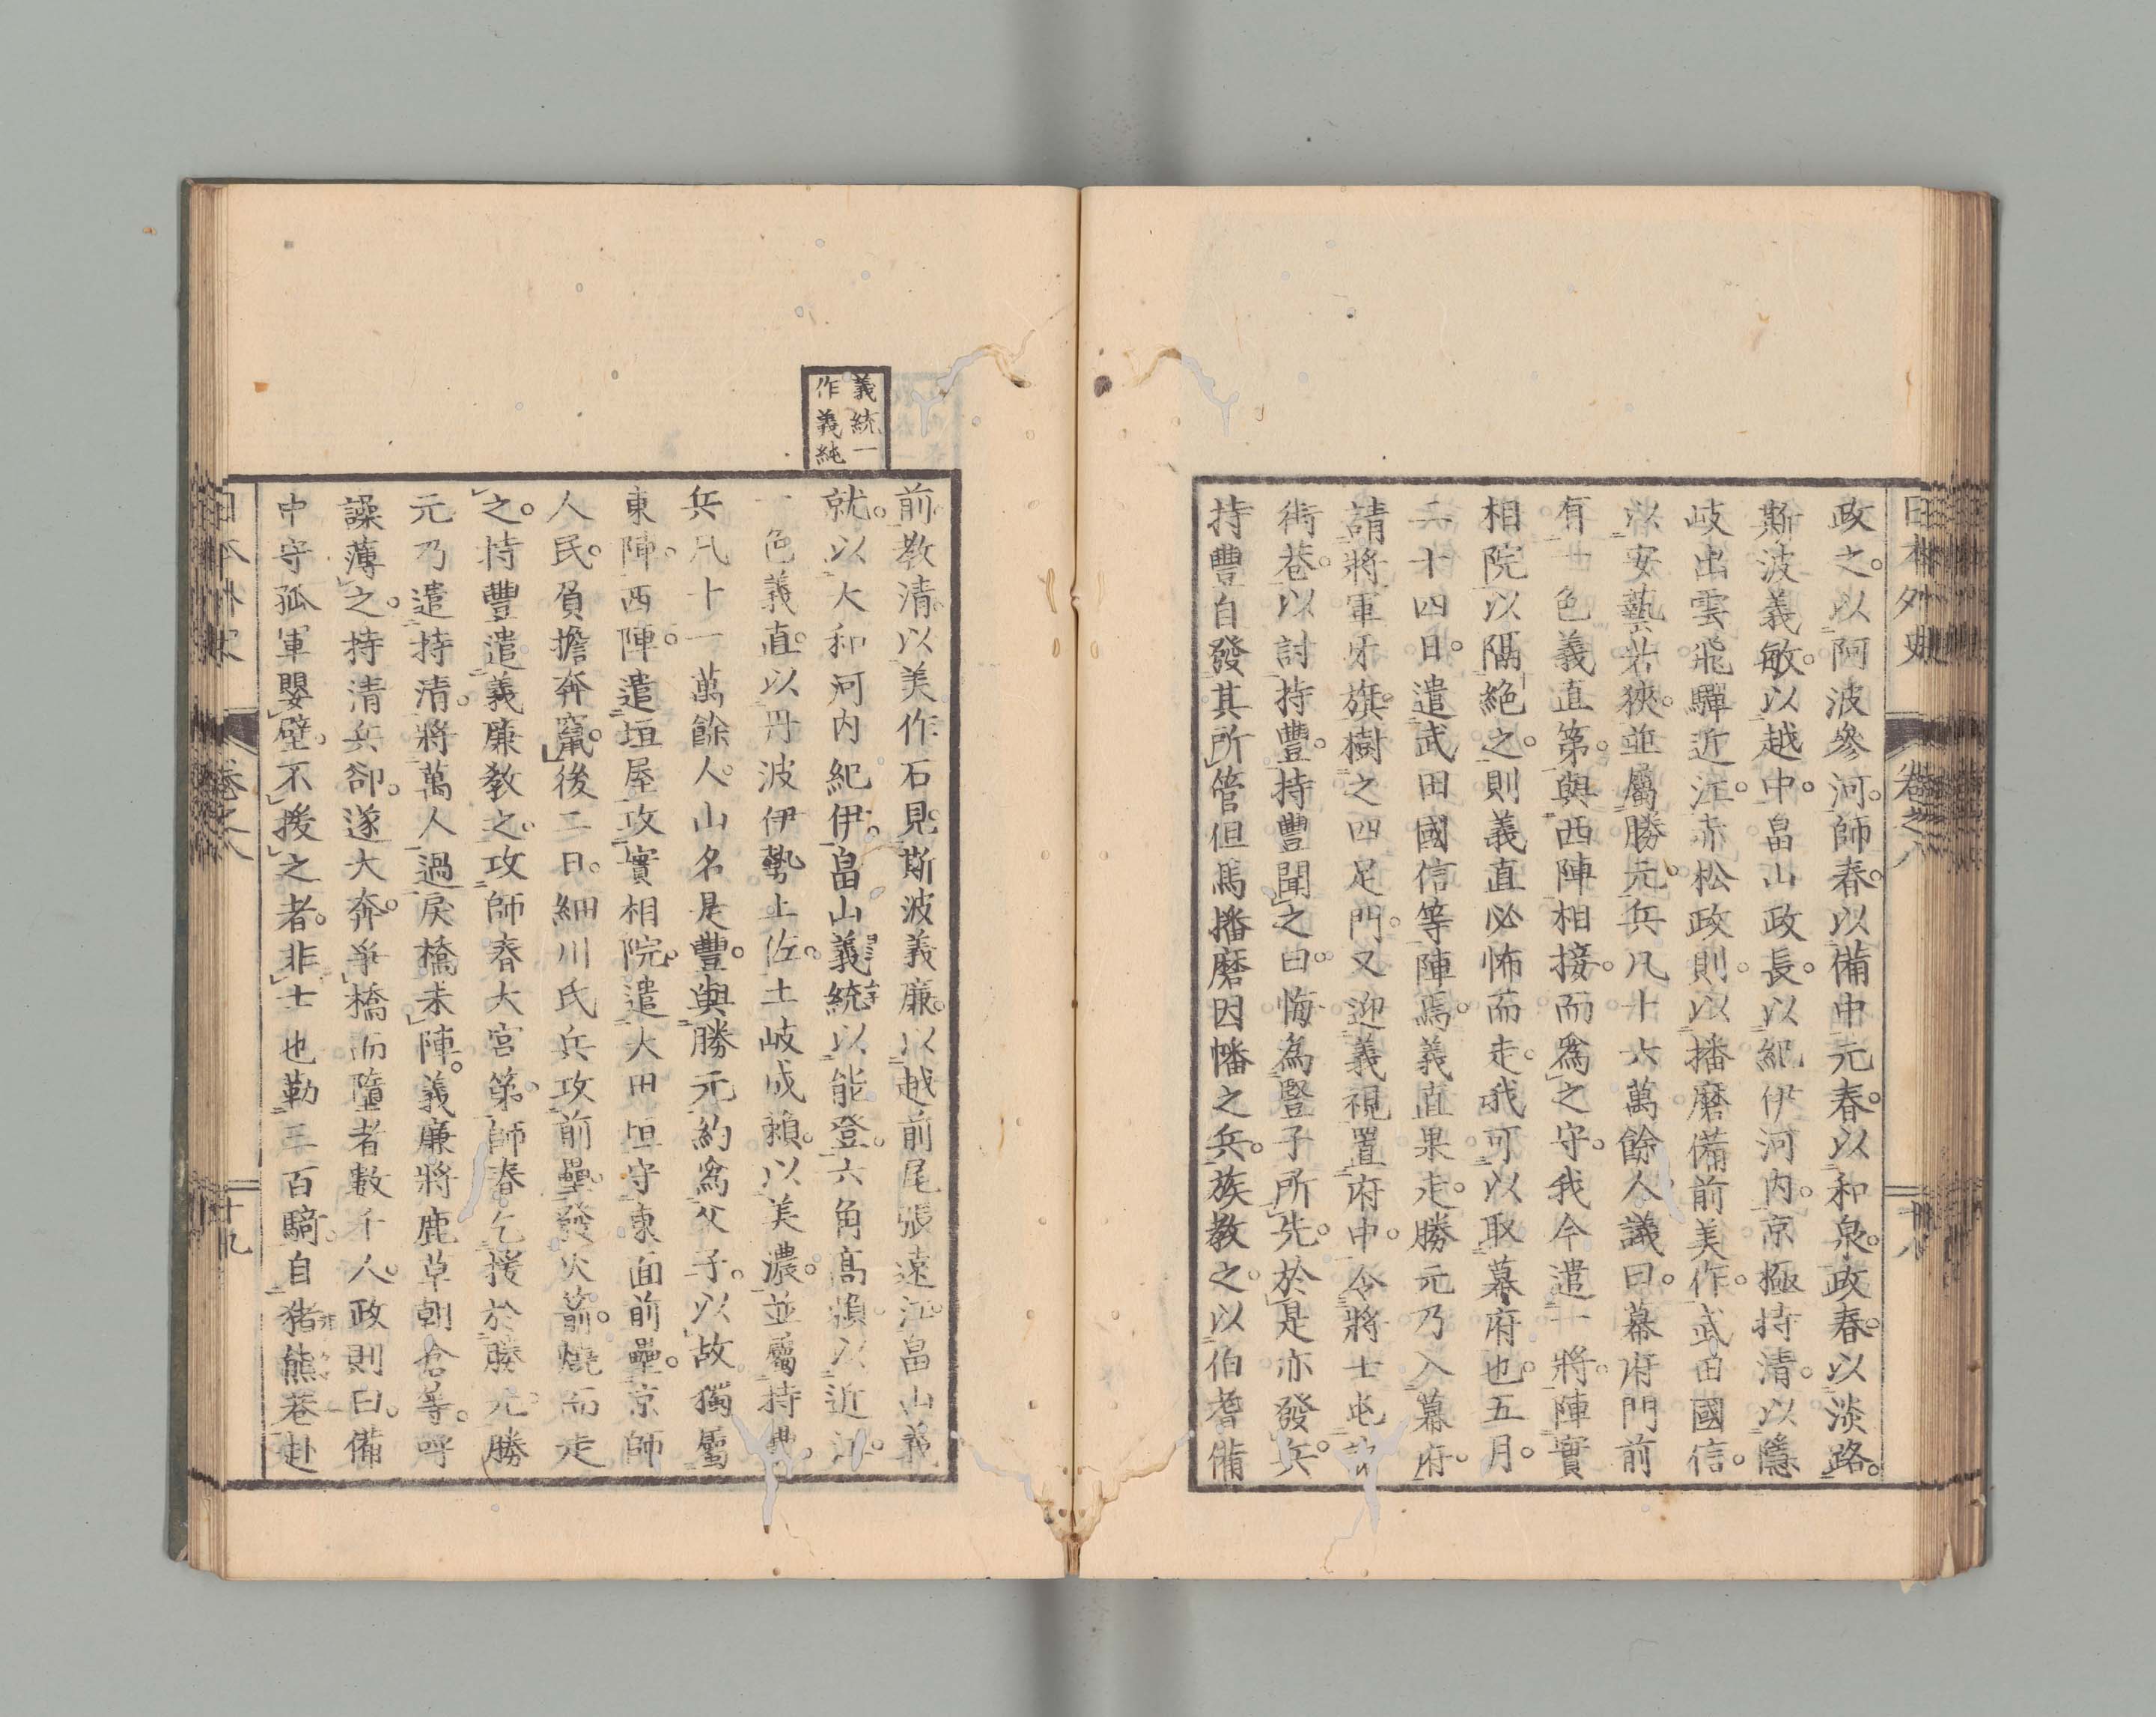 日本外史 卷之八 十八
政之。以阿波參河。師春。以備中元春。以和泉。政春。以淡路。
斯波義敏。以越中。畠山政長。以紀伊河內。京極持清。以隱
岐出雲飛驒近江。赤松政則。以播磨備前美作。武田國信。
以安藝若狹。並屬勝元。兵凡十六萬餘人。議曰。幕府門前
有一色義直第。與西陣相接。而爲之守。我今遣一將。陣實
相院以隔絶之。則義直必怖而走。我可以取幕府也。五月。
二十四日。遣武田國信等陣焉。義直果走。勝元乃入幕府。
請將軍牙旗。樹之四足門。又迎義視置府中。令將士屯
街巷。以討持豐。持豐聞之曰。悔為豎子所先。於是亦發兵。
持豐自發其所管但馬播磨因幡之兵。族教之。以伯耆備
前。教清。以美作石見。斯波義廉。以越前尾張遠江。畠山義
就。以大和河內紀伊。畠山義統以能登。六角高賴以近江。
一色義直。以丹波伊勢土佐。土岐成賴。以美濃。並屬持豐。
兵凡十一萬餘人。山名是豐。與勝元約爲父子。以故獨屬
東陣。西陣。遣垣屋攻實相院。遣大田垣守東面前壘。京師
人民。負擔奔竄。後二日。細川氏兵攻前壘。發火箭。燒而走
之。持豐遣義廉教之。攻師春大宮第。師春乞援於勝元。勝
元乃遣持清。將萬人過戾橋。未陣。義廉將鹿草朝倉等。呼
譟薄之。持清兵卻。遂大奔。爭橋而墮者數千人。政則曰。備
中守孤軍嬰壁。不援之者。非士也。勒三百騎。自猪熊巷赴
義統一
作義純
日本外史 卷之八 十九